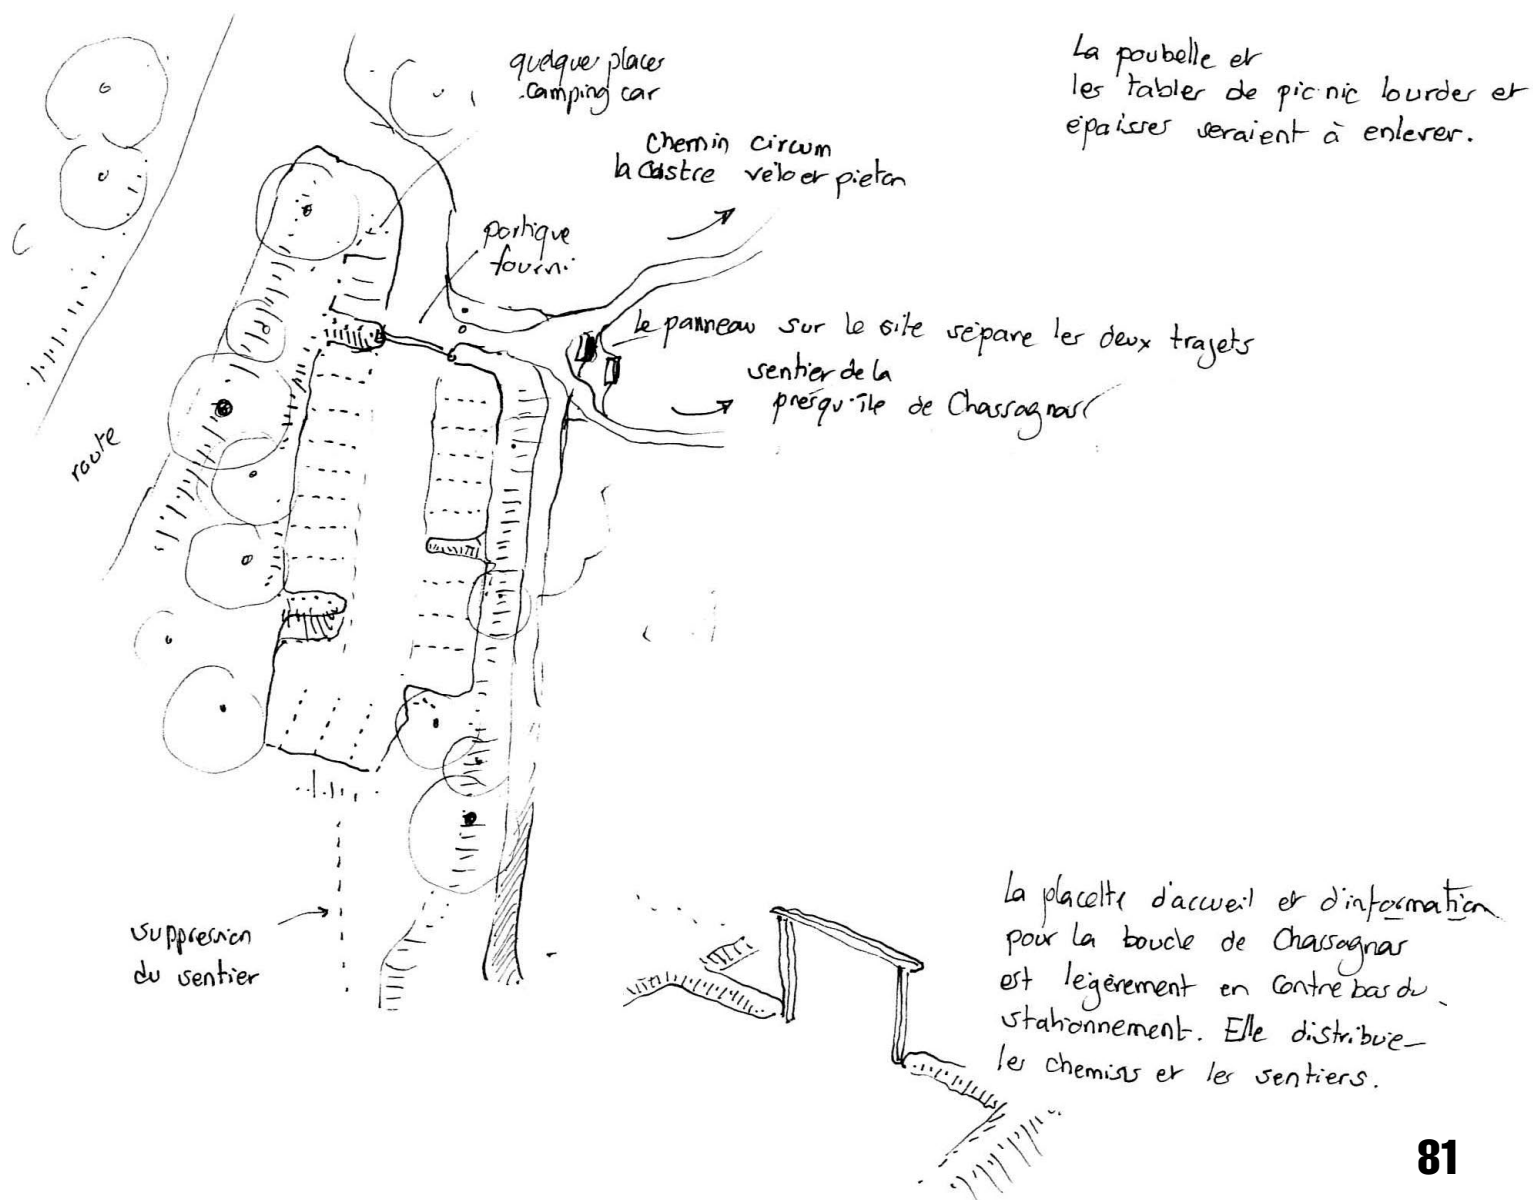 quelque places
camping car
La poubelle et
les tables de pic nic lourdes et
épaisses seraient à enlever.
chemin circum
la Castre vélo et pieton
portique
fourni
le panneau sur le site sépare les deux trajets
sentier de la
presqu'île de Chassagnas
route
suppression
du sentier
La placette d'accueil et d'information
pour la boucle de Chassagnas
est légèrement en contre bas du
stationnement. Elle distribue
les chemins et les sentiers.
81